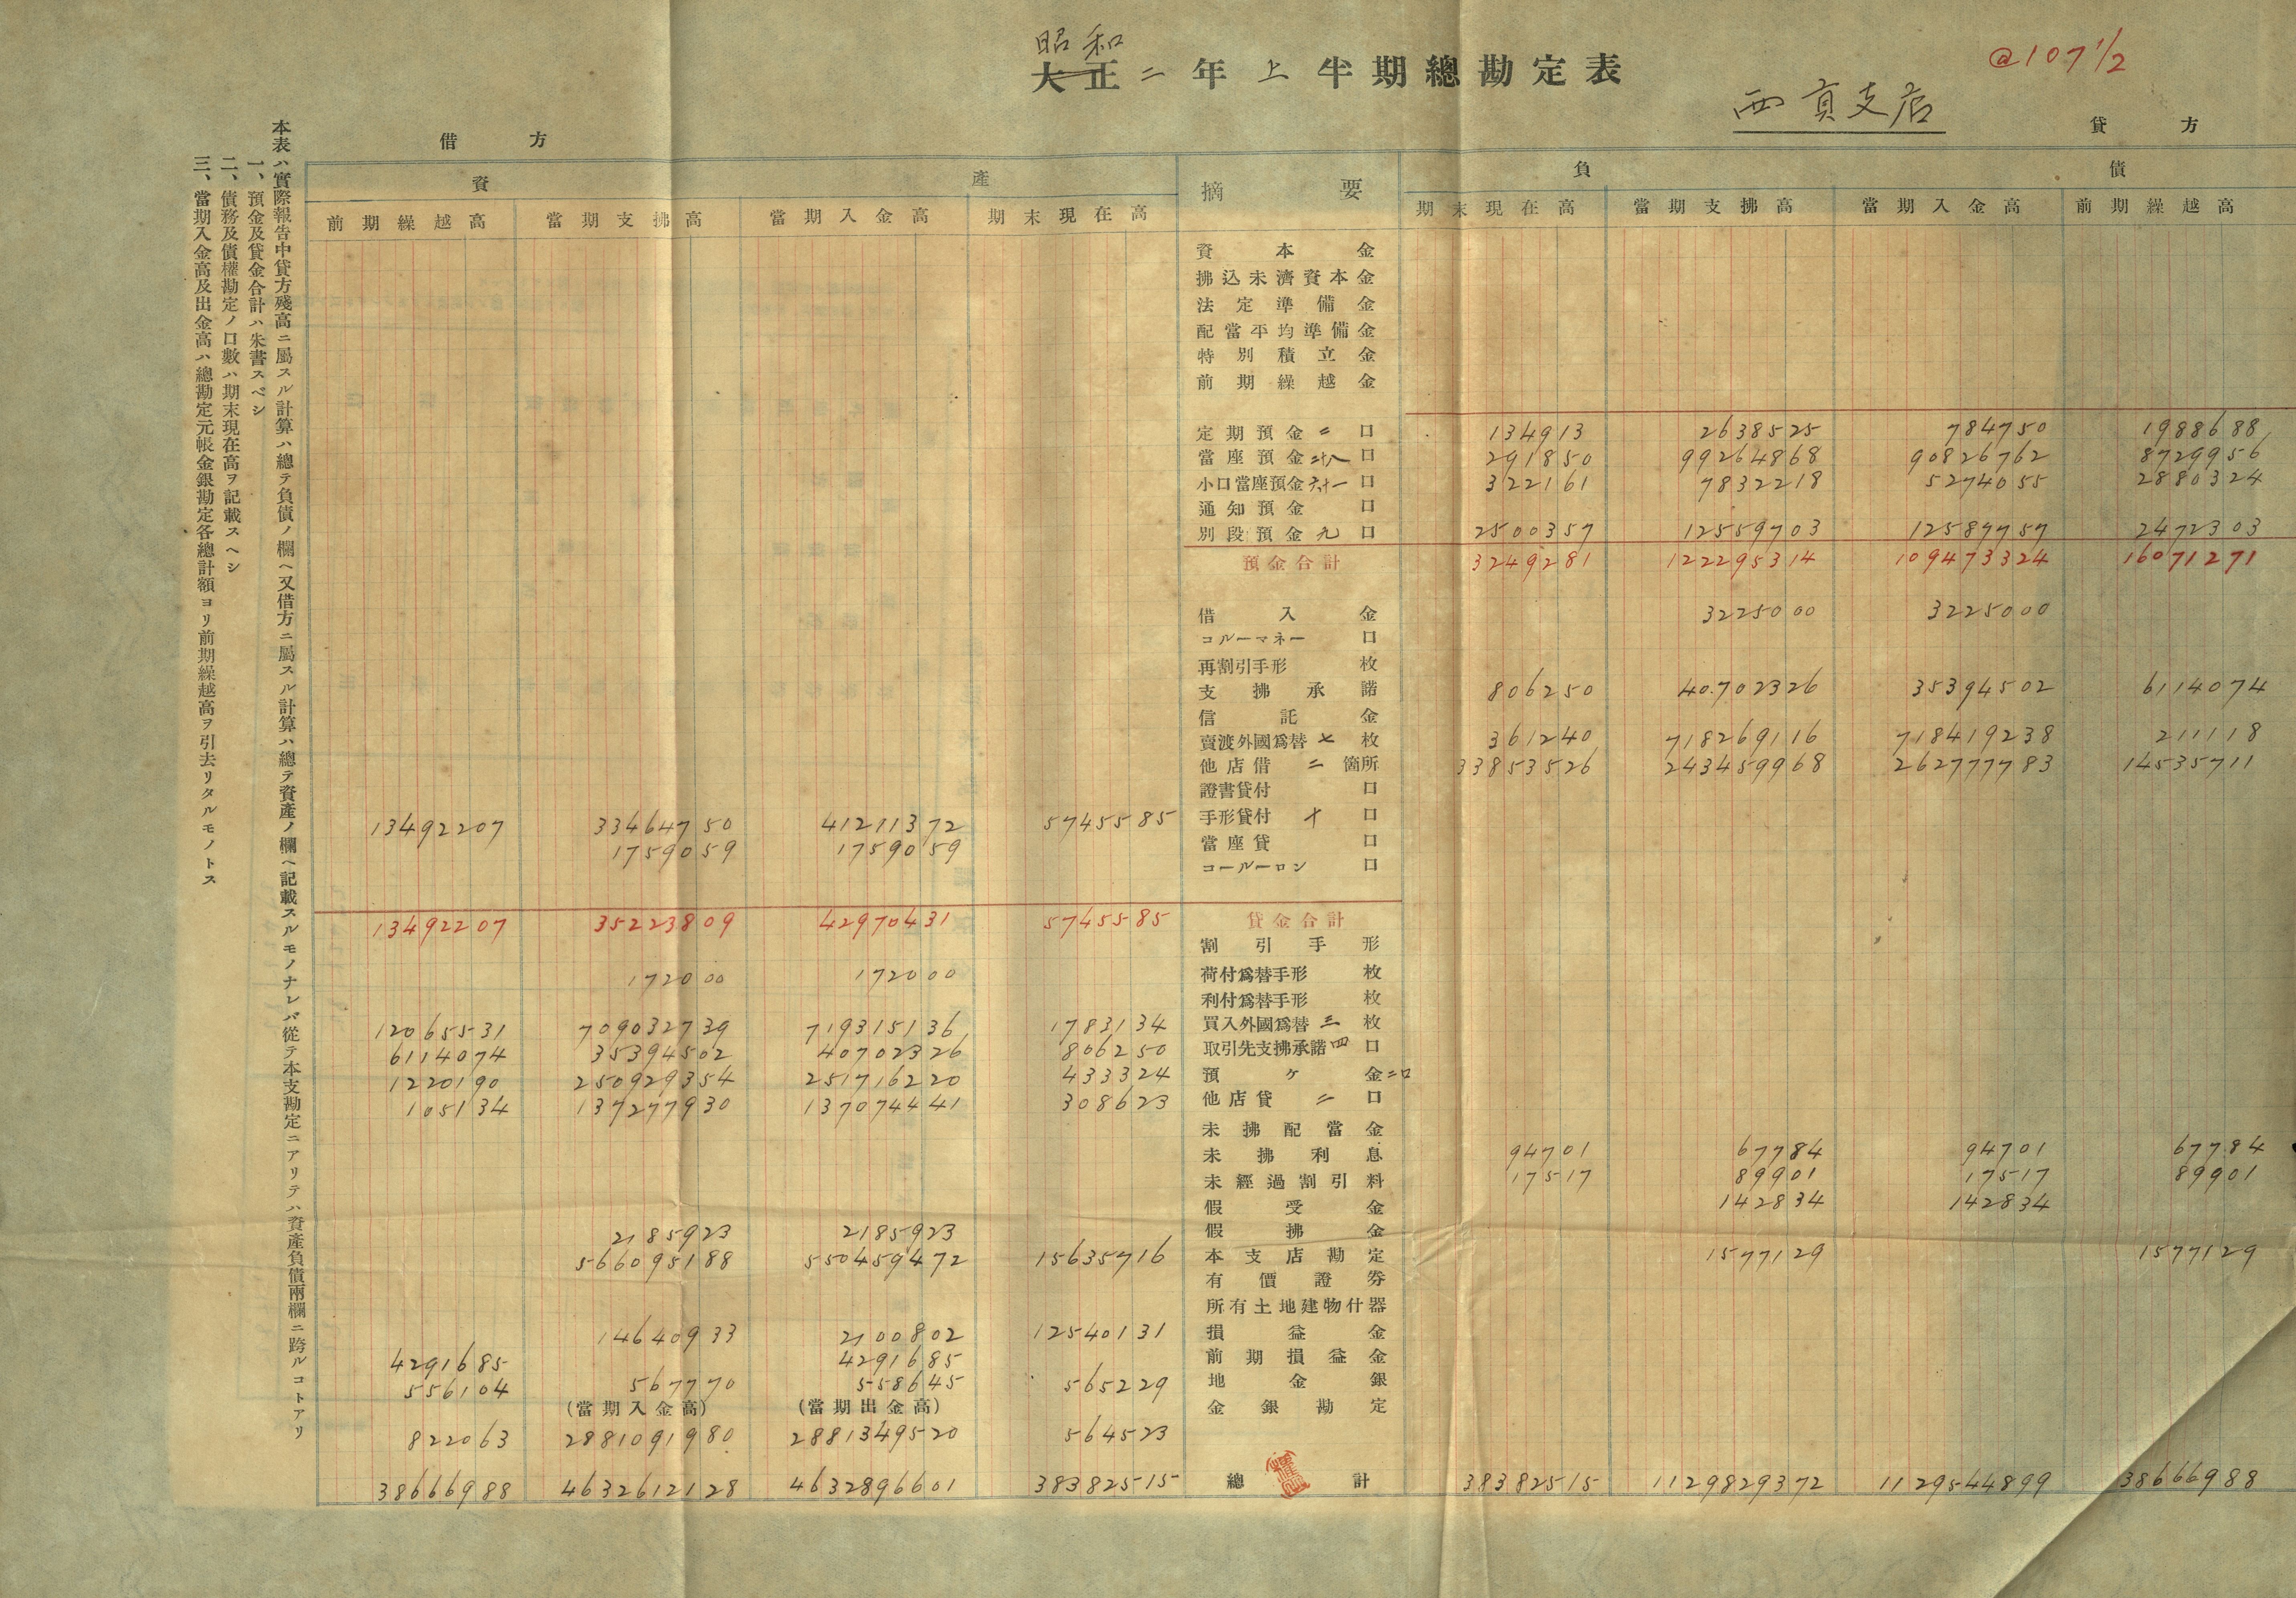 昭和
大正二年上半期總勘定表
@107 1/2
西貢支店
借方
貸方
資產
摘要
負債
前期繰越高 當期支拂高 當期入金高 期末現在高 期末現在高 當期支拂高 當期入金高 前期繰越高
資本金
拂込未濟資本金
法定準備金
配當平均準備金
特別積立金
前期繰越金
定期預金 二 口 134913 2638525 784750 1988688
當座預金 二十八 口 291850 99264868 90826762 8729956
小口當座預金 六十一 口 322161 7832218 5274055 2880324
通知預金 口
別段預金 九 口 2500357 12559703 12587757 2472303
預金合計 3249281 122295314 109473324 16071271
借入金 3225000 3225000
コルーマネー 口
再割引手形 枚
支拂承諾 806250 40702326 35394502 6114074
信託金
賣渡外國爲替 七 枚 361240 718269116 718419238 211118
他店借 二 箇所 33853526 243459968 262777783 14535711
證書貸付 口
13492207 33464750 41211372 5745585 手形貸付 十 口
1759059 1759059 當座貸 口
コールーロン 口
13492207 35223809 42970431 5745585 貸金合計
割引手形
172000 172000 荷付爲替手形 枚
利付爲替手形 枚
12065531 709032739 719315136 1783134 買入外國爲替 三 枚
6114074 35394502 40702326 806250 取引先支拂承諾 四 口
1220190 250929354 251716220 433324 預ケ金 二口
105134 137277930 137074441 308623 他店貸 二 口
未拂配當金
未拂利息 94701 67784 94701 67784
未經過割引料 17517 89901 17517 89901
假受金 142834 142834
2185923 2185923 假拂金
566095188 550459472 15635716 本支店勘定 1577129 1577129
有價證券
所有土地建物什器
14640933 2100802 12540131 損益金
4291685 4291685 前期損益金
556104 567770 558645 565229 地金銀
(當期入金高) (當期出金高) 金銀勘定
822063 2881091980 2881349520 564523
38666988 4632612128 4632896601 38382515 總計 38382515 1129829372 1129544899 38666988
本表ハ實際報告中貸方殘高ニ屬スル計算ハ總テ負債ノ欄ヘ又借方ニ屬スル計算ハ總テ資產ノ欄ヘ記載スルモノナレバ從テ本支勘定ニアリテハ資產負債兩欄ニ跨ルコトアリ
一、預金及貸金合計ハ朱書スベシ
二、債務及債權勘定ノ口數ハ期末現在高ヲ記載スヘシ
三、當期入金高及出金高ハ總勘定元帳金銀勘定各總計額ヨリ前期繰越高ヲ引去リタルモノトス